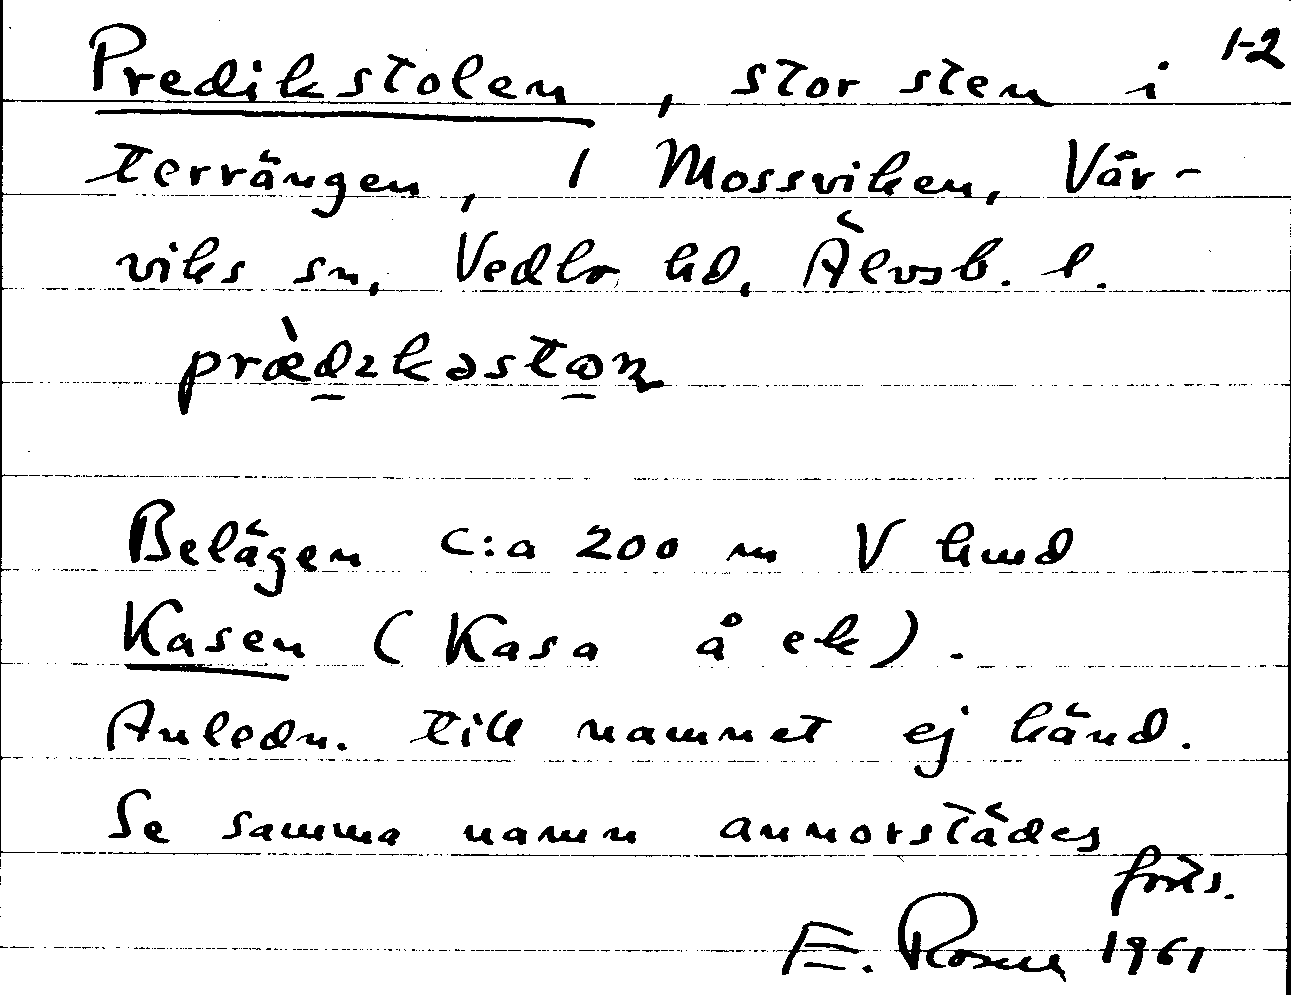 1-2
Predikstolen, stor sten i
terrängen, 1 Mossviken, Vår-
viks sn, Vedbo hd, Älvsb. l.
Belägen c:a 200 m V hmd
Kasen (Kasa å ek).
Anledn. till namnet ej känd.
Se samma namn annorstädes
forts.
E. Rosell 1961